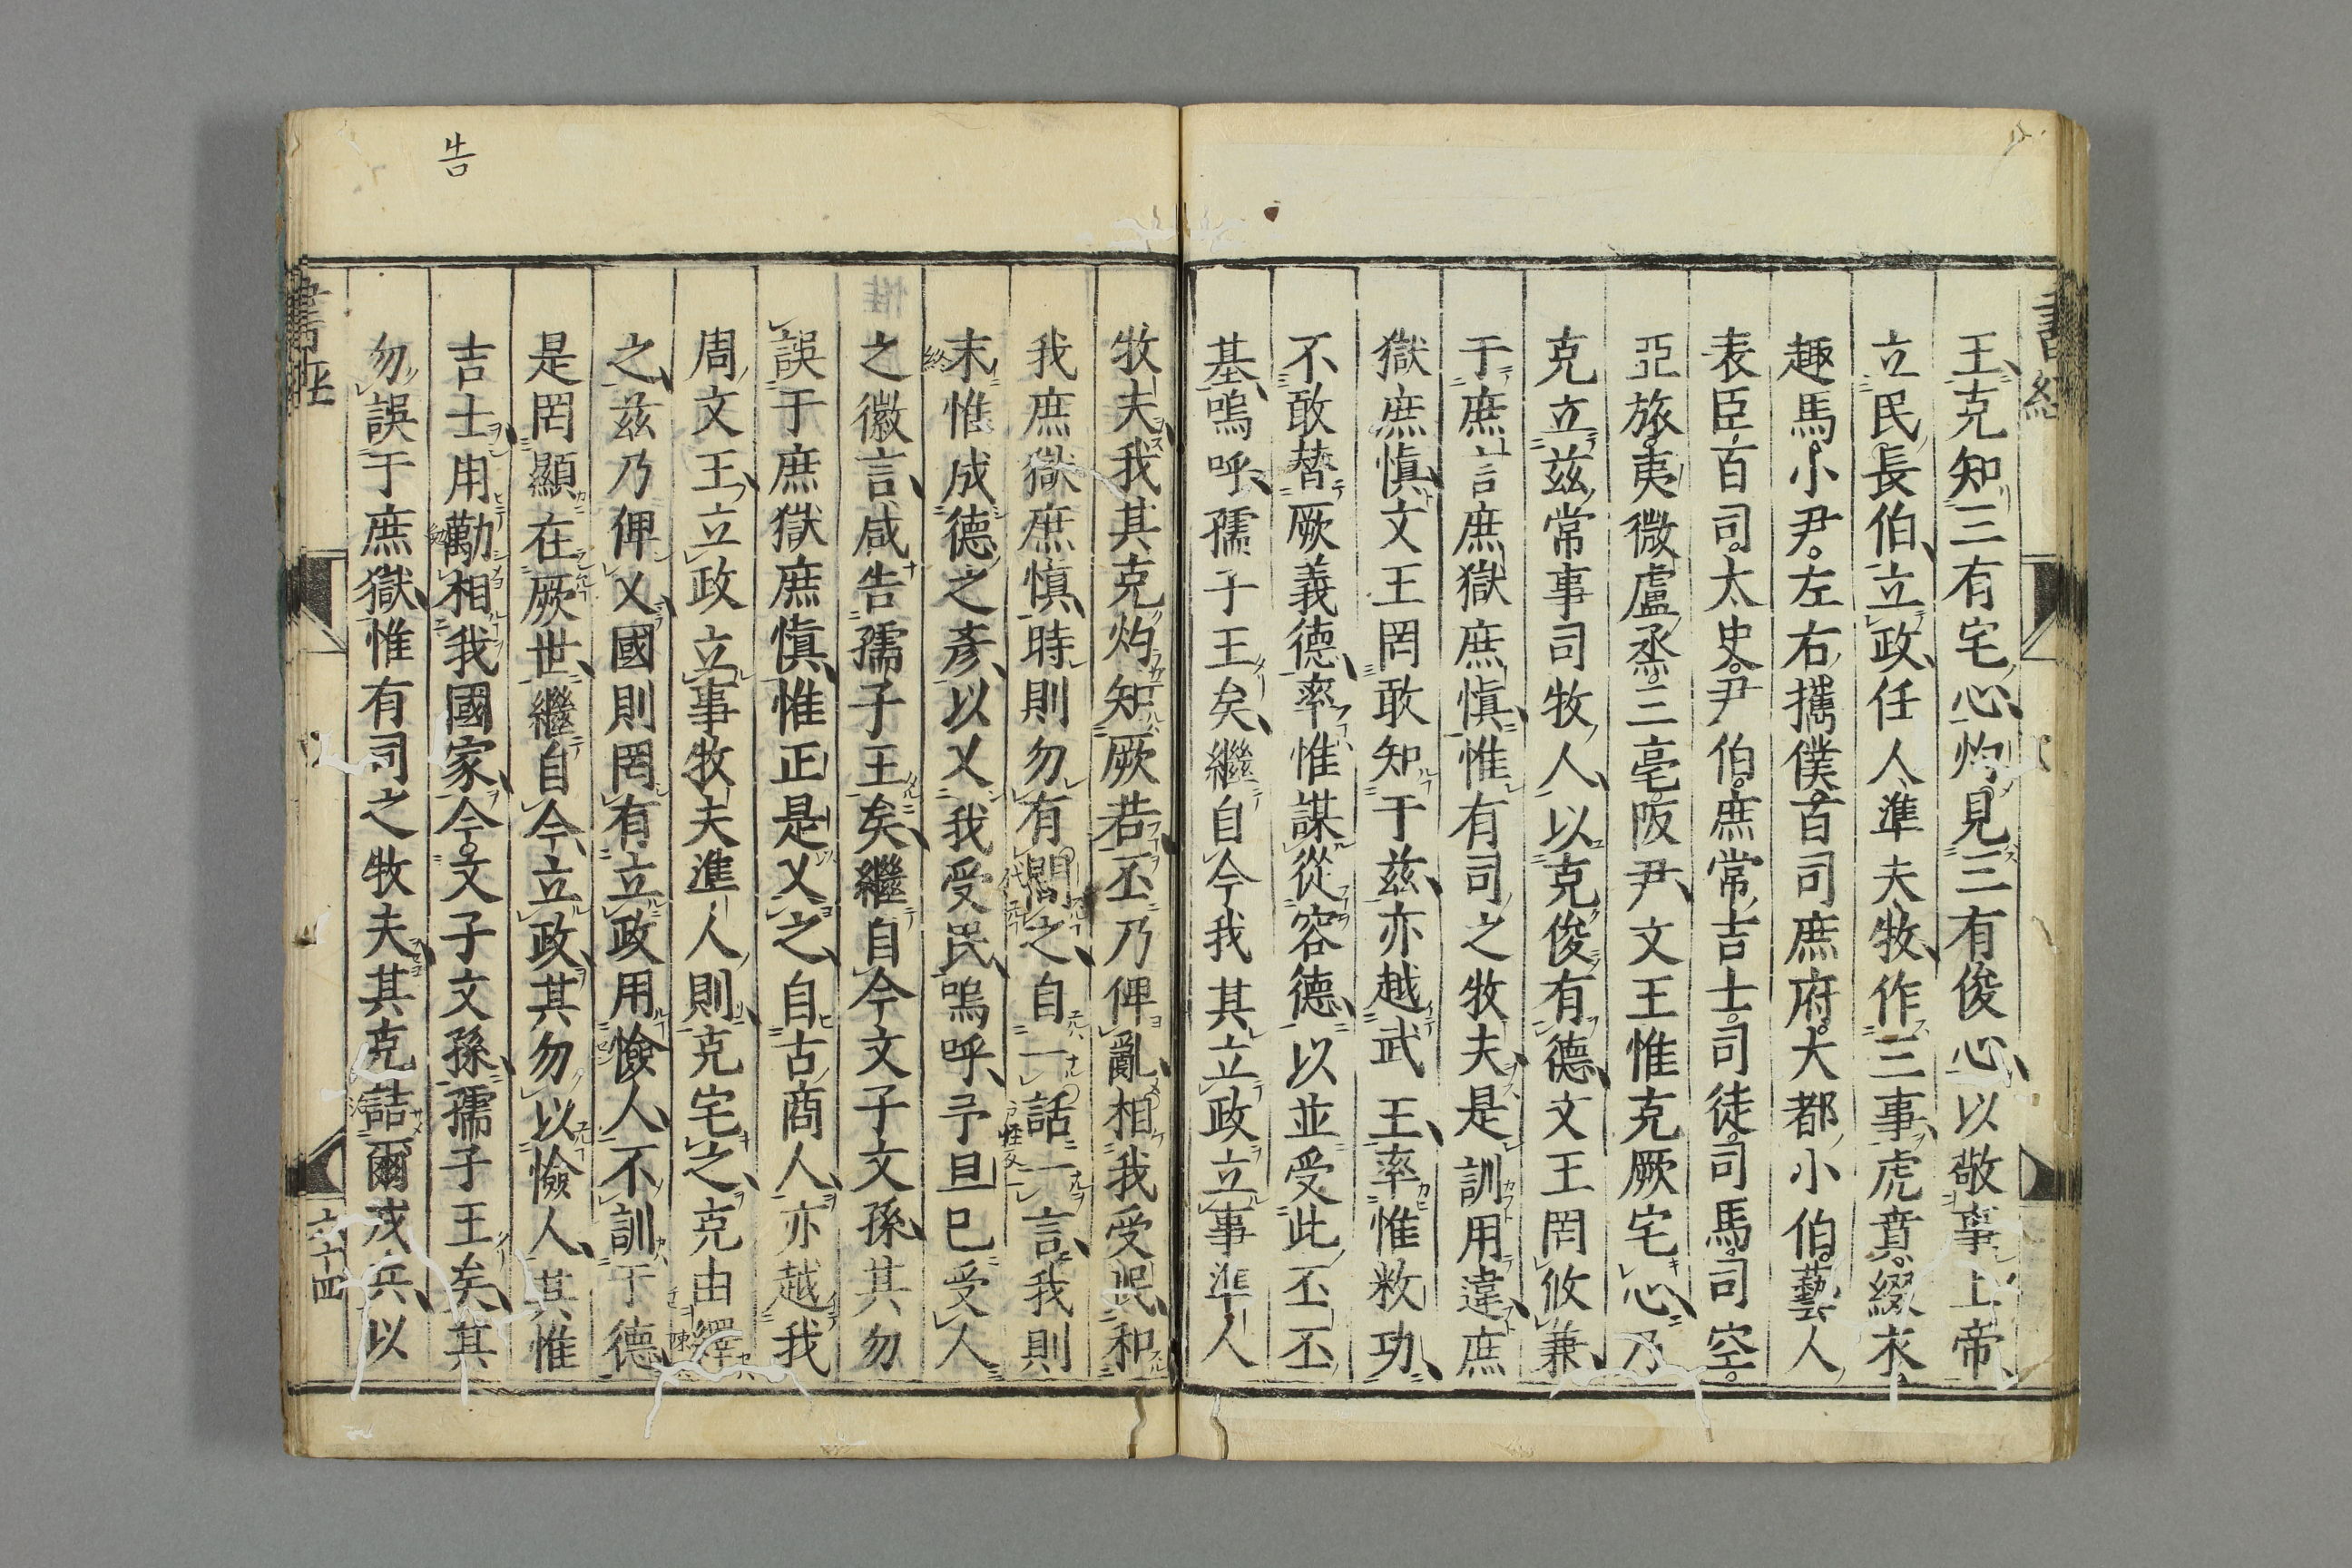 王克知三有宅心灼見三有俊心以敬事上帝
立民長伯立政任人準夫牧作三事虎賁綴衣
趣馬小尹左右攜僕百司庶府大都小伯藝人
表臣百司太史尹伯庶常吉士司徒司馬司空
亞旅夷微盧烝三亳阪尹文王惟克厥宅心乃
克立茲常事司牧人以克俊有德文王罔攸兼
于庶言庶獄庶慎惟有司之牧夫是訓用違庶
獄庶慎文王罔敢知于茲亦越武王率惟敉功
不敢替厥義德率惟謀從容德以並受此丕丕
基嗚呼孺子王矣繼自今我其立政立事準人
牧夫我其克灼知厥若丕乃俾亂相我受民和
我庶獄庶慎時則勿有間之自一話一言我則
末惟成德之彥以乂我受民嗚呼予旦已受人
之徽言咸告孺子王矣繼自今文子文孫其勿
誤于庶獄庶慎惟正是乂之自古商人亦越我
周文王立政立事牧夫準人則克宅之克由繹
之茲乃俾乂國則罔有立政用憸人不訓于德
是罔顯在厥世繼自今立政其勿以憸人其惟
吉士用勱相我國家今文子文孫孺子王矣其
勿誤于庶獄惟有司之牧夫其克詰爾戎兵以
書經
六十四
告